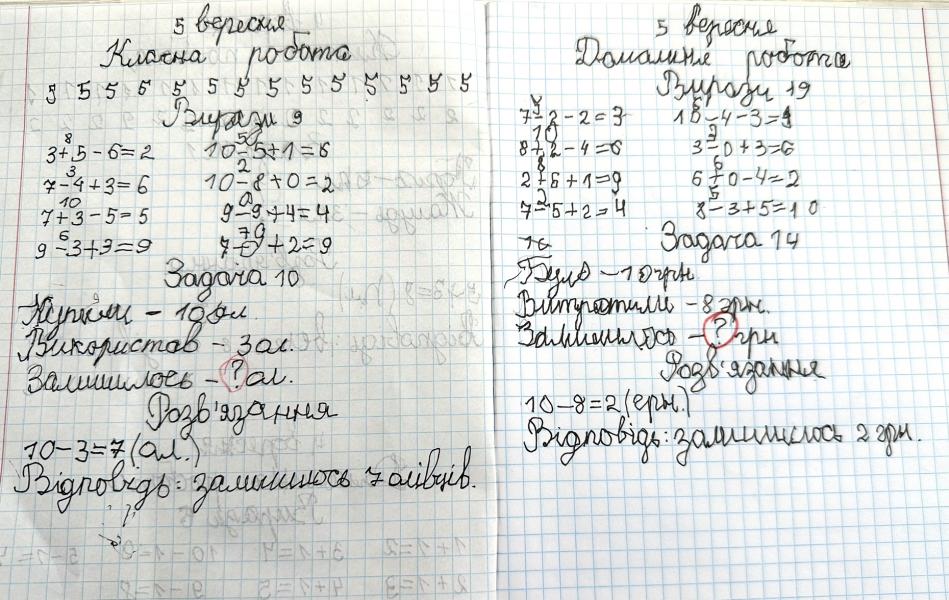 5 вересня
Класна робота
5 5 5 5 5 5 5 5 5 5 5 5 5 5
Вирази 9
8 5
3+5-6=2 10-5+1=6
3 2
7-4+3=6 10-8+0=2
10 0
7+3-5=5 9-9+4=4
6 7
9-3+3=9 7-0+2=9
Задача 10
Купили - 10 ол.
Використав - 3 ол.
Залишилось - ? ол.
Розв'язання
10-3=7 (ол.)
Відповідь: залишилось 7 олівців.
5 вересня
Домашня робота
Вирази 19
7-2-2=3 -4-3=
10 3
8+2-4=6 3-0+3=6
8 6
2+6+1=9 6+0-4=2
2 5
7-5+2=4 8-3+5=10
Задача 14
Було - 10 грн.
Витратили - 8 грн.
Залишилось - ? грн
Розв'язання
10-8=2 (грн.)
Відповідь: залишилось 2 грн.